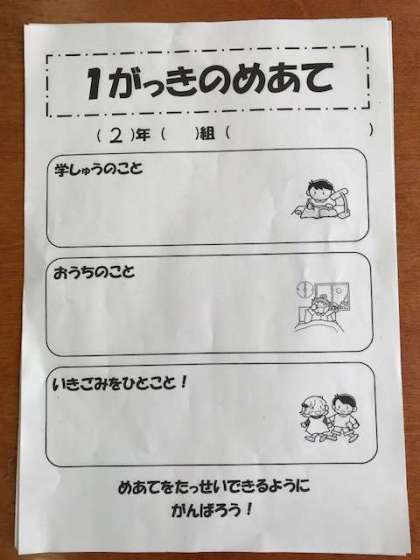 1がっきのめあて
(2)年( )組( )
学しゅうのこと
おうちのこと
いきごみをひとこと!
めあてをたっせいできるように
がんばろう!